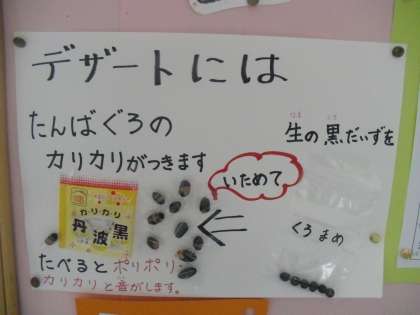 デザートには
たんばぐろの
カリカリがつきます
生の黒だいずを
いためて
くろまめ
カリカリ
丹波黒
たべるとポリポリ
カリカリと音がします。